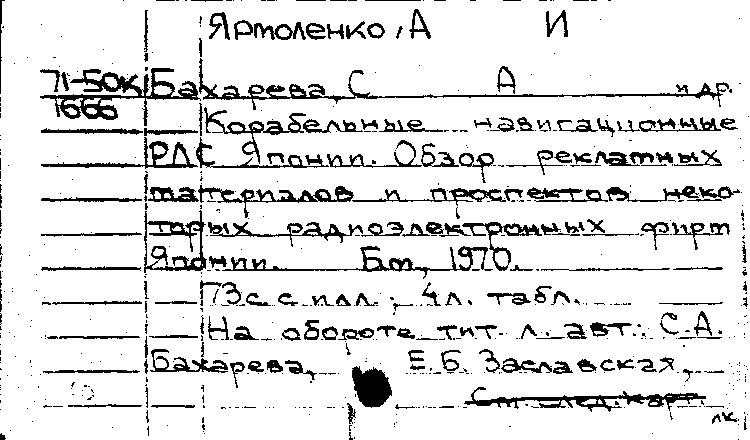 Ярмоленко, А И
71-50К Бахарева, С А и др.
1666 Корабельные навигационные
РЛС Японии. Обзор рекламных
материалов и проспектов неко-
торых радиоэлектронных фирм
Японии. Б.м., 1970.
73 с. с илл.; 4 л. табл.
На обороте тит. л. авт.: С.А.
Бахарева, Е.Б. Заславская,
См. след. карт.
лк